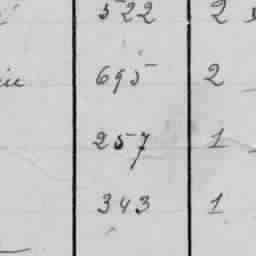 522 2
695 2
257 1
343 1